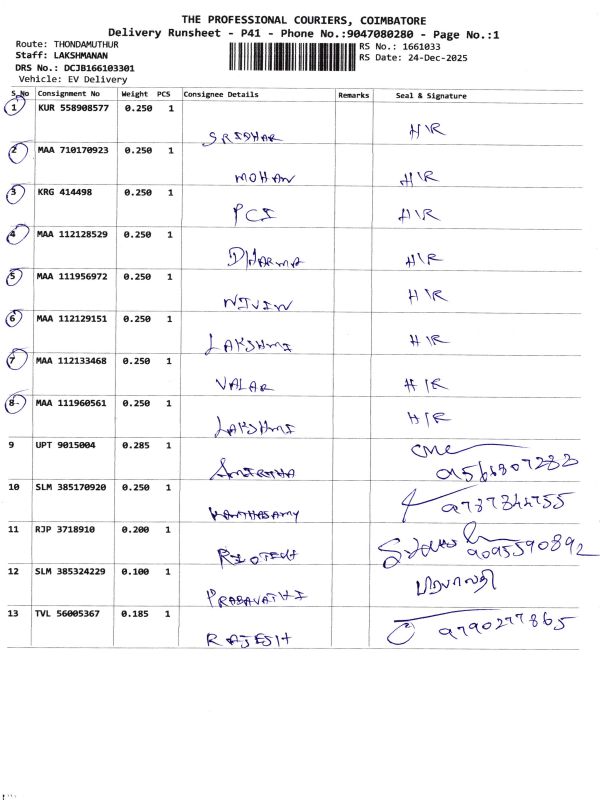 THE PROFESSIONAL COURIERS, COIMBATORE
Delivery Runsheet - P41 - Phone No.:9047080280 - Page No.:1
Route: THONDAMUTHUR
RS No.: 1661033
Staff: LAKSHMANAN
RS Date: 24-Dec-2025
DRS No.: DCJB166103301
Vehicle: EV Delivery
S No Consignment No Weight PCS Consignee Details Remarks Seal & Signature
1 KUR 558908577 0.250 1
SRIDHAR H\R
2 MAA 710170923 0.250 1
MOHAN H\R
3 KRG 414498 0.250 1
PCI H\R
4 MAA 112128529 0.250 1
DHARMA H\R
5 MAA 111956972 0.250 1
NIVIN H\R
6 MAA 112129151 0.250 1
LAKSHMI H\R
7 MAA 112133468 0.250 1
VALAR H\R
8 MAA 111960561 0.250 1
LAKSHMI H\R
9 UPT 9015004 0.285 1
9566807283
10 SLM 385170920 0.250 1
KANTHASAMY
11 RJP 3718910 0.200 1
9095590892
12 SLM 385324229 0.100 1
PRABAVATHI
13 TVL 56005367 0.185 1
RAJESH 9790277865